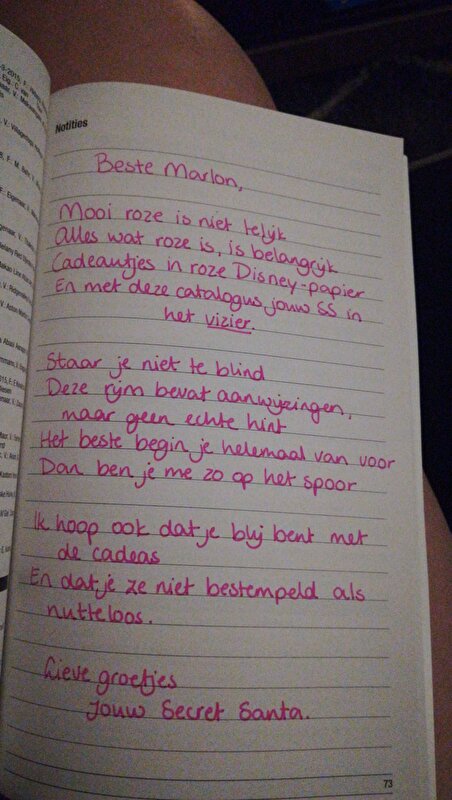 Notities
Beste Marlon,
Mooi roze is niet lelijk
Alles wat roze is, is belangrijk
Cadeautjes in roze Disney-papier
En met deze catalogus jouw SS in
het vizier.
Staar je niet te blind
Deze rijm bevat aanwijzingen,
maar geen echte hint
Het beste begin je helemaal van voor
Dan ben je me zo op het spoor
Ik hoop ook dat je blij bent met
de cadeas
En dat je ze niet bestempeld als
nutteloos.
Lieve groetjes
Jouw Secret Santa.
73